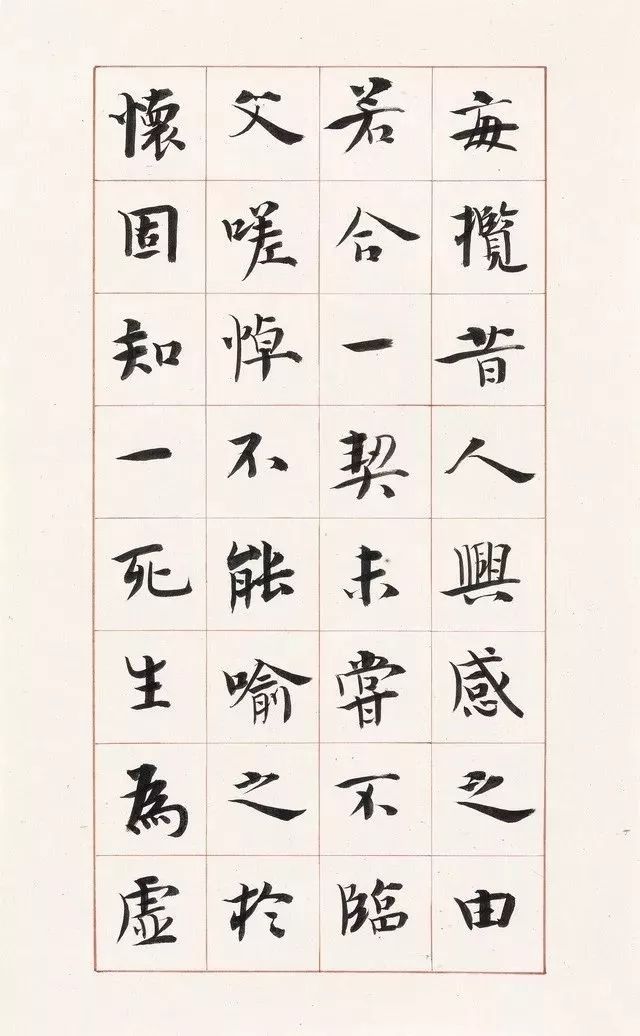 每攬昔人興感之由
若合一契未嘗不臨
父嗟悼不能喻之於
懷固知一死生為虛